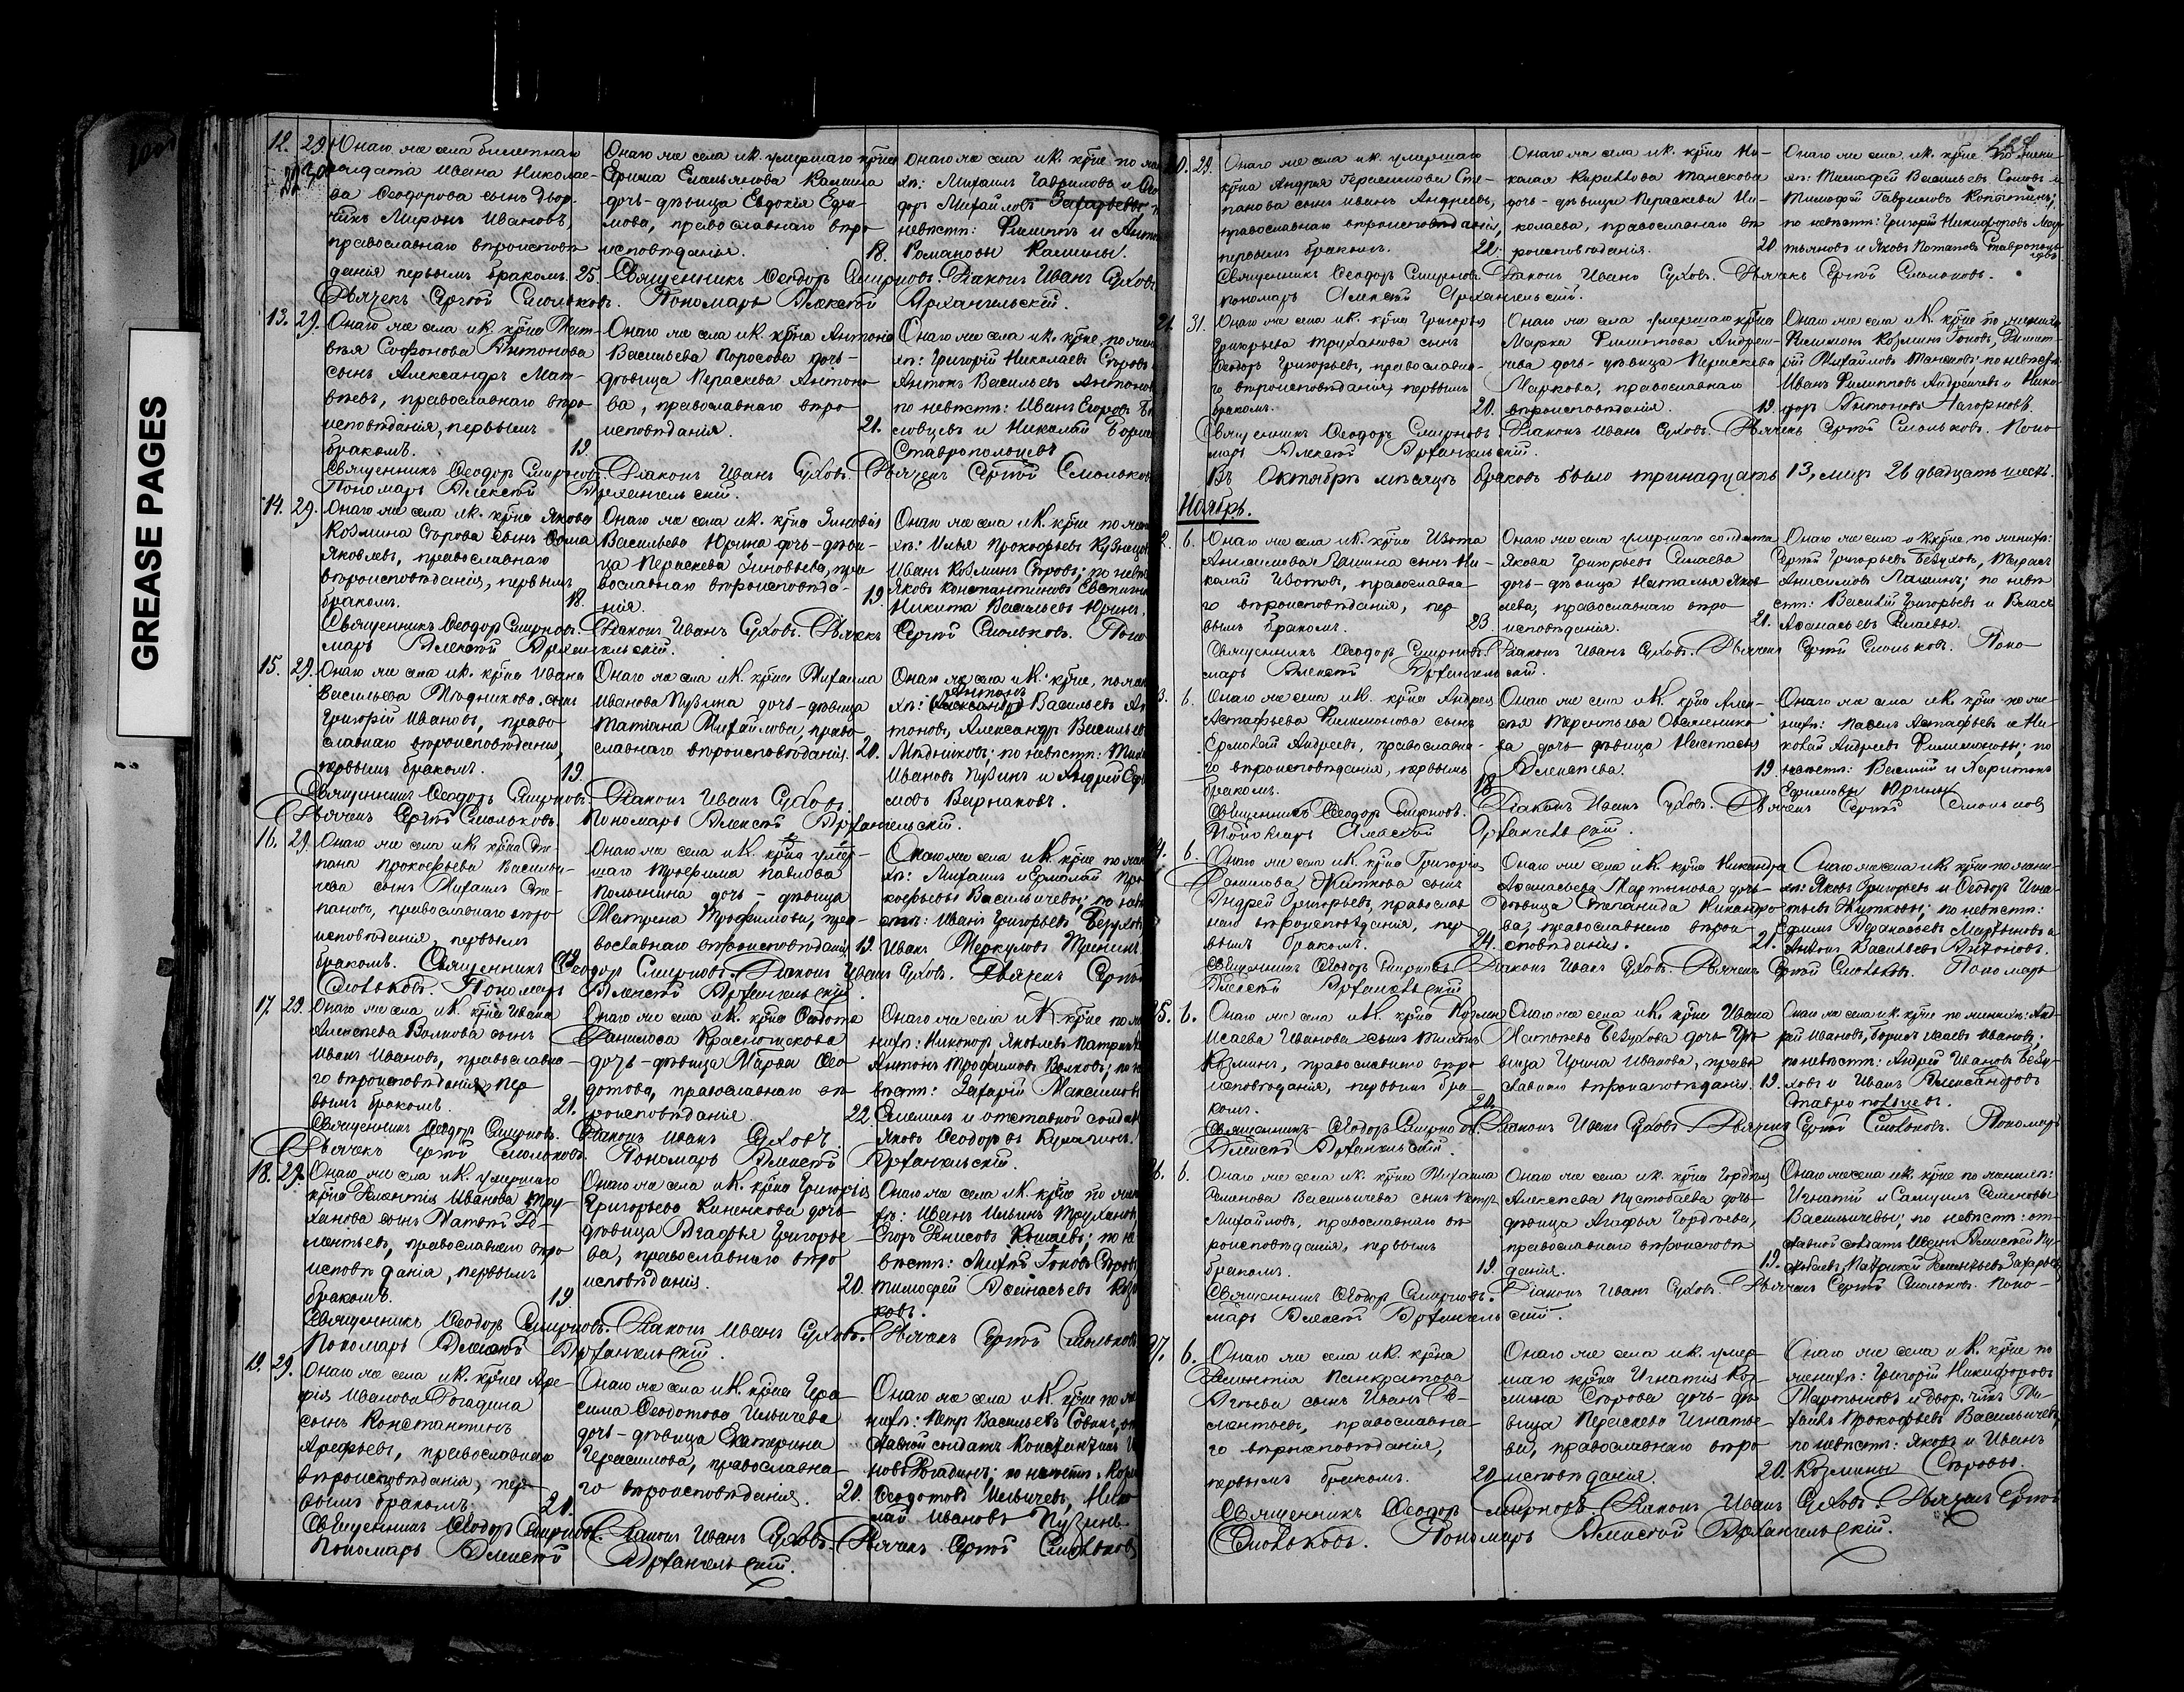 GREASE PAGES
12. 29. Онаго же села билетнаго
солдата Ивана Николае-
ва Ѳеодорова сынъ двор.
чикъ Миронъ Ивановъ,
православнаго вѣроисповѣ
данія первымъ бракомъ. 25.
Онаго же села ик. умершаго кр̃на
Ефима Емельянова Калмина
дочь-дѣвица Евдокія Ефи-
мова, православнаго вѣро
исповѣданія. 18.
Онаго же села ик. кр̃не по
хѣ: Михаилъ Гавриловъ и
доръ Михайловъ
невѣстѣ: Филиппъ и
Романовы
Священникъ Ѳеодоръ Смирновъ. Діаконъ Иванъ Суховъ
Дьячекъ Сергѣй Смольковъ. Пономарь Алексѣй Архангельскій.
13. 29. Онаго же села ик. кр̃на Мат-
вѣя Софонова Антонова
сынъ Александръ Мат-
вѣевъ, православнаго вѣро
исповѣданія, первымъ
бракомъ. 19.
Онаго же села ик. кр̃на Антона
Васильева Поросова дочь-
дѣвица Параскева Антоно
ва, православнаго вѣро
исповѣданія. 21.
Онаго же села ик. кр̃не по
хѣ: Григорій Николаевъ
Антонъ Васильевъ
по невѣстѣ: Иванъ Егоровъ
и Николай
Ставропольцевъ
Священникъ Ѳеодоръ Смирновъ. Діаконъ Иванъ Суховъ. Дьячекъ Сергѣй Смольковъ
Пономарь Алексѣй Архангельскій.
14. 29. Онаго же села ик. кр̃на Якова
Козмина Сѣрова сынъ Ѳома
Яковлевъ, православнаго
вѣроисповѣданія, первымъ
бракомъ. 18.
Онаго же села ик. кр̃на Зиновія
Васильева Юрина дочь-дѣви-
ца Параскева Зиновьева, пра
вославнаго вѣроисповѣда-
нія. 19.
Онаго же села ик. кр̃не по
хѣ: Илья Прокофьевъ
Иванъ Козминъ Сѣровъ; по
Яковъ Константиновъ
Никита Васильевъ Юринъ.
Священникъ Ѳеодоръ Смирновъ. Діаконъ Иванъ Суховъ. Дьячекъ Сергѣй Смольковъ. Поно
марь Алексѣй Архангельскій.
15. 29. Онаго же села ик. кр̃на Ивана
Васильева Мѣдникова сынъ
Григорій Ивановъ, право
славнаго вѣроисповѣданія,
первымъ бракомъ. 19.
Онаго же села ик. кр̃на Михаила
Иванова Пузина дочь-дѣвица
Татіана Михайлова, право
славнаго вѣроисповѣданія. 20.
Онаго же села ик. кр̃не, по
Антонъ
хѣ: Александръ Васильевъ Ан
тоновъ, Александръ
Мѣдниковъ; по невѣстѣ:
Ивановъ Пузинъ и Андрей
Варнаковъ.
Священникъ Ѳеодоръ Смирновъ. Діаконъ Иванъ Суховъ
Дьячекъ Сергѣй Смольковъ. Пономарь Алексѣй Архангельскій.
16. 29. Онаго же села ик. кр̃на Сте-
пана Прокофьева Василы-
чева сынъ Михаилъ Сте-
пановъ, православнаго вѣро
исповѣданія, первымъ
бракомъ. 19.
Онаго же села ик. кр̃на умер-
шаго Трофима Павлова
дочь - дѣвица
Матрена Трофимова, пра-
вославнаго вѣроисповѣданія 19.
Онаго же села ик. кр̃не по
хѣ: Михаилъ и Ермолай Про
кофьевы Василычевы; по
стѣ: Иванъ Григорьевъ Безухов
Иванъ Меркуловъ
Священникъ Ѳеодоръ Смирновъ. Діаконъ Иванъ Суховъ. Дьячекъ Сергѣй
Смольковъ. Пономарь Алексѣй Архангельскій.
17. 29. Онаго же села ик. кр̃на Ивана
Алексѣева Волкова сынъ
Иванъ Ивановъ, православна
го вѣроисповѣданія, пер
вымъ бракомъ. 21.
Онаго же села ик. кр̃на Ѳедота
Данилова Краснощекова
дочь-дѣвица Марѳа Ѳео
дотова, православнаго вѣ
роисповѣданія 22.
Онаго же села ик. кр̃не по
нихѣ: Никоноръ Яковлевъ
Антонъ Трофимовъ Волковъ;
вѣстѣ: Захарій Максимовъ
и отставной солдатъ
Яковъ Ѳеодоровъ
Священникъ Ѳеодоръ Смирновъ. Діаконъ Иванъ Суховъ.
Дьячекъ Сергѣй Смольковъ. Пономарь Алексѣй Архангельскій.
18. 29. Онаго же села ик. умершаго
кр̃на Дементія Иванова Тру
ханова сынъ Матвѣй Де-
ментьевъ, православнаго вѣро
исповѣданія, первымъ
бракомъ. 19.
Онаго же села ик. кр̃на Григорія
Григорьева Киненкова дочь-
дѣвица Агафья Григорье-
ва, православнаго вѣро
исповѣданія. 20.
Онаго же села ик. кр̃не по
хѣ: Иванъ Ильинъ Трухановъ,
Егоръ Денисовъ Кошаевъ; по
вѣстѣ: Михей Іоновъ Сѣровъ
Тимофей
ковъ.
Священникъ Ѳеодоръ Смирновъ. Діаконъ Иванъ Суховъ. Дьячекъ Сергѣй Смольковъ
Пономарь Алексѣй Архангельскій.
19. 29. Онаго же села ик. кр̃на Аре-
фія Иванова Рогадина
сынъ Константинъ
Арефьевъ, православнаго
вѣроисповѣданія, пер-
вымъ бракомъ. 20.
Онаго же села ик. кр̃на Гера
сима Ѳеодотова Ильичева
дочь-дѣвица Екатерина
Герасимова, православна-
го вѣроисповѣданія. 20.
Онаго же села ик. кр̃не по
нихѣ: Петръ Васильевъ
ставной солдатъ Константинъ
новъ Рогадинъ; по невѣстѣ:
Ѳеодотовъ Ильичевъ,
лай Ивановъ Пузинъ.
Священникъ Ѳеодоръ Смирновъ. Діаконъ Иванъ Суховъ. Дьячекъ Сергѣй Смольковъ
Пономарь Алексѣй Архангельскій.
20. 29. Онаго же села ик. умершаго
кр̃на Андрея Герасимова Сте-
панова сынъ Иванъ Андреевъ,
православнаго вѣроисповѣданія,
первымъ бракомъ. 20.
Онаго же села ик. кр̃на Ни-
колая Кириллова Танекова
дочь-дѣвица Параскева Ни-
колаева, православнаго вѣ
роисповѣданія. 20.
Онаго же села ик. кр̃не по жени-
хѣ: Тимофей Васильевъ и
Тимофей Гавриловъ
по невѣстѣ: Григорій Никифоровъ Мар
тьяновъ и Яковъ Потаповъ Ставрополь
цевъ
Священникъ Ѳеодоръ Смирновъ. Діаконъ Иванъ Суховъ. Дьячекъ Сергѣй Смольковъ.
Пономарь Алексѣй Архангельскій.
21. 31. Онаго же села ик. кр̃на Григорья
Григорьева Труханова сынъ
Ѳеодоръ Григорьевъ, православна-
го вѣроисповѣданія, первымъ
бракомъ. 20.
Онаго же села умершаго кр̃на
Марка Филиппова Андреи-
чева дочь-дѣвица Параскева
Маркова, православнаго
вѣроисповѣданія. 19.
Онаго же села ик. кр̃не по женихѣ
Филимонъ Козминъ Іоновъ,
Михайловъ Танековъ; по невѣстѣ
Иванъ Филипповъ Андреичевъ и Ника-
норъ Антоновъ Нагорновъ.
Священникъ Ѳеодоръ Смирновъ. Діаконъ Иванъ Суховъ. Дьячекъ Сергѣй Смольковъ. Поно
марь Алексѣй Архангельскій.
Въ Октябрѣ мѣсяцѣ браковъ было тринадцать 13, лицъ 26 двадцать шесть.
Ноябрь.
6. Онаго же села ик. кр̃на Изота
Анисимова Лашина сынъ Ни-
колай Изотовъ, православна-
го вѣроисповѣданія, пер-
вымъ бракомъ. 23.
Онаго же села умершаго солдата
Якова Григорьева Силаева
дочь-дѣвица Наталья Яков-
лева, православнаго вѣро
исповѣданія. 21.
Онаго же села кр̃не по женихѣ:
Сергѣй Григорьевъ Безуховъ,
Анисимовъ Лашинъ; по невѣ
стѣ: Василій Григорьевъ и Власъ
Аѳанасьевъ Силаевы.
Священникъ Ѳеодоръ Смирновъ. Діаконъ Иванъ Суховъ. Дьячекъ Сергѣй Смольковъ. Поно
марь Алексѣй Архангельскій.
3. 6. Онаго же села ик. кр̃на Андрея
Астафьева Филимонова сынъ
Ермолай Андреевъ, православна-
го вѣроисповѣданія, первымъ
бракомъ. 18.
Онаго же села ик. кр̃на Алек-
сѣя Терентьева Овсяннико
ва дочь-дѣвица Настасья
Алексѣева 19.
Онаго же села ик. кр̃не по же-
нихѣ: Павелъ Астафьевъ и Ни-
колай Андреевъ Филимоновы; по
невѣстѣ: Василій и Харитонъ
Ефимовы Юрины
Священникъ Ѳеодоръ Смирновъ. Діаконъ Иванъ Суховъ. Дьячекъ Сергѣй Смольковъ
Пономарь Алексѣй Архангельскій.
4. 6. Онаго же села ик. кр̃на Григорья
Данилова Житкова сынъ
Андрей Григорьевъ, православ
наго вѣроисповѣданія, пер
вымъ бракомъ. 24.
Онаго же села ик. кр̃на Никандра
Аѳанасьева Мартынова дочь-
дѣвица Степанида Никандро
ва, православнаго вѣрои-
сповѣданія. 21.
Онаго же села ик. кр̃не по жени-
хѣ: Яковъ Григорьевъ и Ѳеодоръ Игна-
тьевъ Житковы; по невѣстѣ:
Ефимъ Аѳанасьевъ Мартыновъ и
Антонъ Васильевъ Антоновъ.
Священникъ Ѳеодоръ Смирновъ. Діаконъ Иванъ Суховъ. Дьячекъ Сергѣй Смольковъ. Пономарь
Алексѣй Архангельскій
25. 6. Онаго же села ик. кр̃на Козмы
Исаева Иванова сынъ Тихонъ
Козминъ, православнаго вѣро
исповѣданія, первымъ бра-
комъ. 20.
Онаго же села ик. кр̃на Ивана
Безухова дочь дѣ
вица Ирина Иванова, право
славнаго вѣроисповѣданія. 19.
Онаго же села ик. кр̃не по женихѣ: Анд-
рей Ивановъ, Борисъ Исаевъ Ивановы;
по невѣстѣ: Андрей Ивановъ Безу-
ховъ и Иванъ Александровъ
Ставропольцевъ.
Священникъ Ѳеодоръ Смирновъ. Діаконъ Иванъ Суховъ. Дьячекъ Сергѣй Смольковъ. Пономарь
Алексѣй Архангельскій.
26. 6. Онаго же села ик. кр̃на Михаила
Семенова Василычева сынъ Петръ
Михайловъ, православнаго вѣ
роисповѣданія, первымъ
бракомъ. 19.
Онаго же села ик. кр̃на Гордѣя
Алексѣева Пустобаева дочь-
дѣвица Агафья Гордѣева,
православнаго вѣроисповѣ
данія. 19.
Онаго же села ик. кр̃не по женихѣ:
Игнатій и Самуилъ Семеновы
Василычевы; по невѣстѣ: от-
ставной солдатъ Иванъ Алексѣевъ Пу-
стобаевъ, Патрикей Дементьевъ Захарьевъ
Священникъ Ѳеодоръ Смирновъ. Діаконъ Иванъ Суховъ. Дьячекъ Сергѣй Смольковъ. Поно-
марь Алексѣй Архангельскій.
27. 6. Онаго же села ик. кр̃на
Дементія Панкратова
сынъ Иванъ Де-
ментьевъ, православна-
го вѣроисповѣданія,
первымъ бракомъ. 20.
Онаго же села ик. умер-
шаго кр̃на Игнатія Коз-
мина Сѣрова дочь-дѣ-
вица Параскева Игнатье-
ва, православнаго вѣро
исповѣданія. 20.
Онаго же села ик. кр̃не по
женихѣ: Григорій Никифоровъ
Мартыновъ и двор. чикъ Ми-
хаилъ Прокофьевъ Василычевъ,
по невѣстѣ: Яковъ и Иванъ
Козмины Сѣровы.
Священникъ Ѳеодоръ Смирновъ. Діаконъ Иванъ Суховъ. Дьячекъ Сергѣй
Смольковъ. Пономарь Алексѣй Архангельскій.